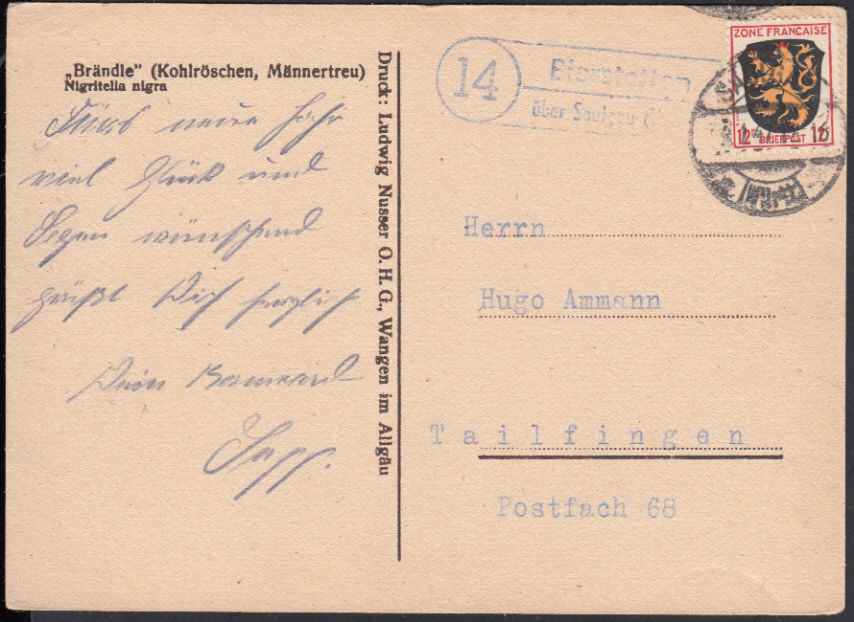 „Brändle" (Kohlröschen, Männertreu)
Nigritella nigra
Fürs neue Jahr
viel Glück und
Segen wünschend
grüßt Dich herzlich
Dein
Druck: Ludwig Nusser O. H. G., Wangen im Allgäu
14
Bierstetten
über Saulgau
ZONE FRANÇAISE
12 BRIEFPOST 12
Herrn
Hugo Ammann
Tailfingen
Postfach 68